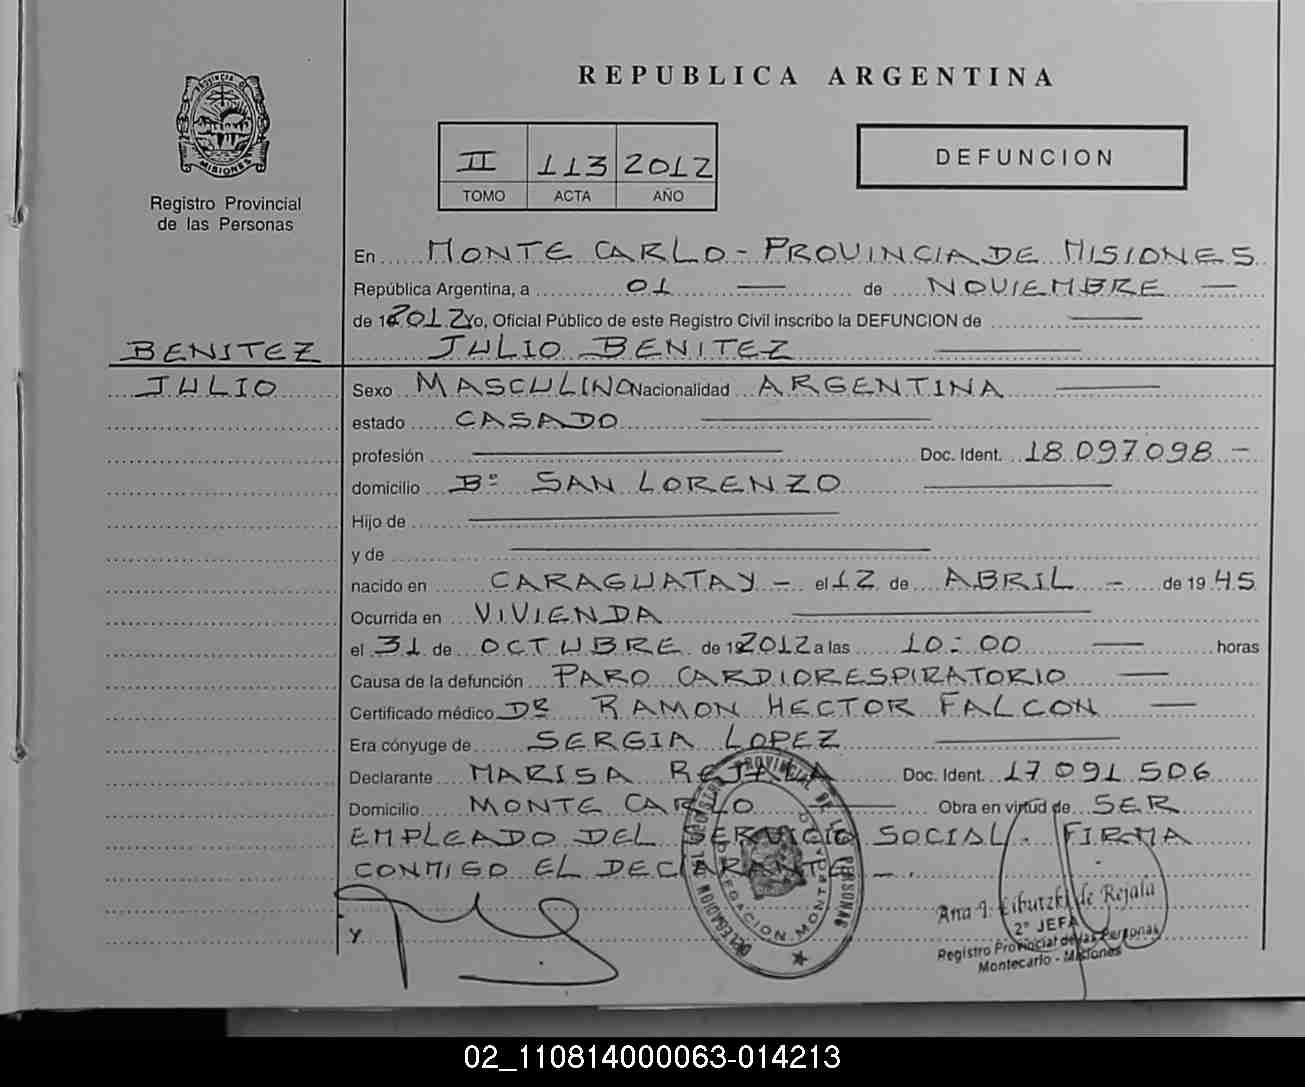 REPUBLICA ARGENTINA
PROVINCIA DE MISIONES
Registro Provincial
de las Personas
II 113 2012
TOMO ACTA AÑO
DEFUNCION
En MONTE CARLO - PROVINCIA DE MISIONES
República Argentina, a 01 — de NOVIEMBRE —
de 2012 Yo, Oficial Público de este Registro Civil inscribo la DEFUNCION de —
BENITEZ JULIO BENITEZ —
JULIO Sexo MASCULINO Nacionalidad ARGENTINA —
estado CASADO —
profesión — Doc. Ident. 18.097.098 -
domicilio Bº SAN LORENZO —
Hijo de —
y de —
nacido en CARAGUATAY - el 12 de ABRIL - de 1945
Ocurrida en VIVIENDA —
el 31 de OCTUBRE de 2012 a las 10:00 — horas
Causa de la defunción PARO CARDIORESPIRATORIO —
Certificado médico DR RAMON HECTOR FALCON —
Era cónyuge de SERGIA LOPEZ —
Declarante MARISA REJALA Doc. Ident. 17.091.506
Domicilio MONTE CARLO — Obra en virtud de SER
EMPLEADO DEL SERVICIO SOCIAL. FIRMA
CONMIGO EL DECLARANTE -.
y
DELEGACION DEL REGISTRO PROVINCIAL DE LAS PERSONAS
Ana I. Libutzki de Rejala
2º JEFA
Registro Provincial de las Personas
Montecarlo - Misiones
02_110814000063-014213